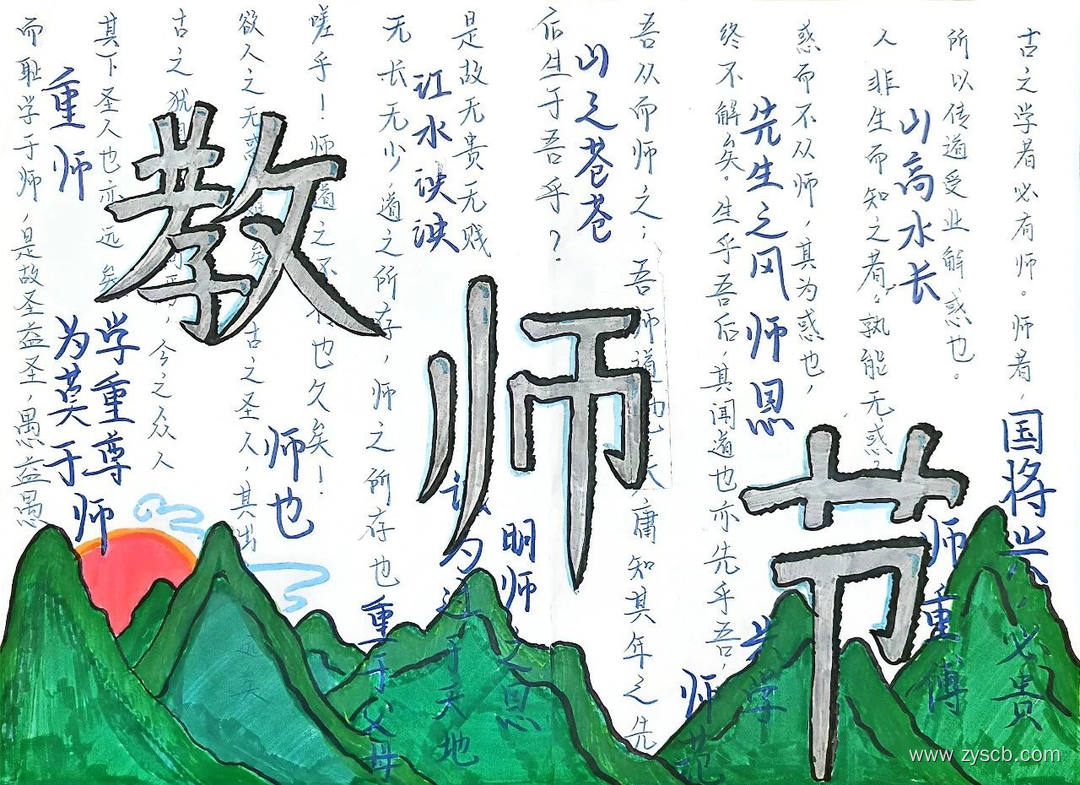 教师节
国将兴，必贵
古之学者必有师。师者，
所以传道受业解惑也。
师重傅
山高水长
人非生而知之者，孰能无惑？
惑而不从师，其为惑也，
先生之风 师恩
终不解矣。生乎吾后，其闻道也亦先乎吾，
学
师范
吾从而师之；吾师道也，夫庸知其年之先
山之苍苍
后生于吾乎？
明师之恩
是故无贵无贱
江水泱泱
为过于天地
无长无少，道之所存，师之所存也
重于父母
嗟乎！师道之不传也久矣！
师也
欲人之无惑 矣 古之圣人，其出
古之犹 今之众人
其下圣人也亦远矣
学重尊
重师
为莫于师
而耻学于师，是故圣益圣，愚益愚
www.zyscb.com